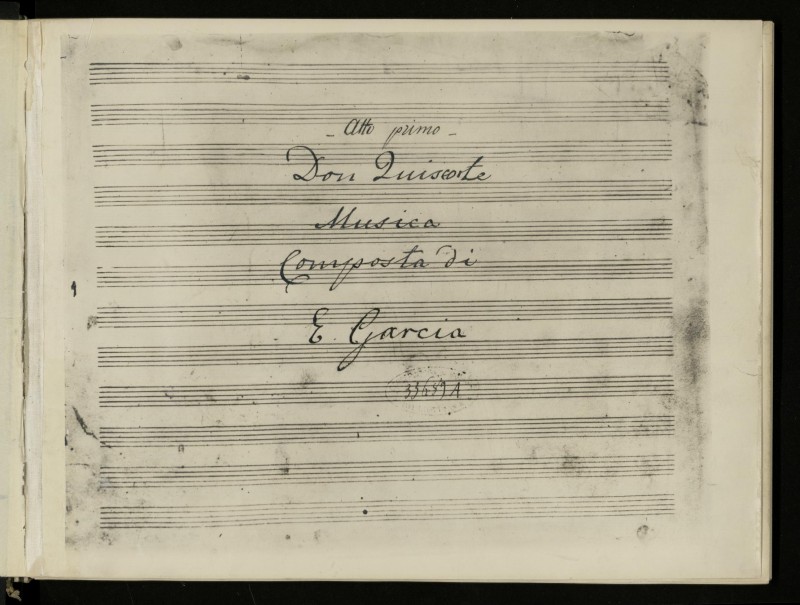 - Atto primo -
Don Quisciotte
Musica
Composta di
E. Garcia